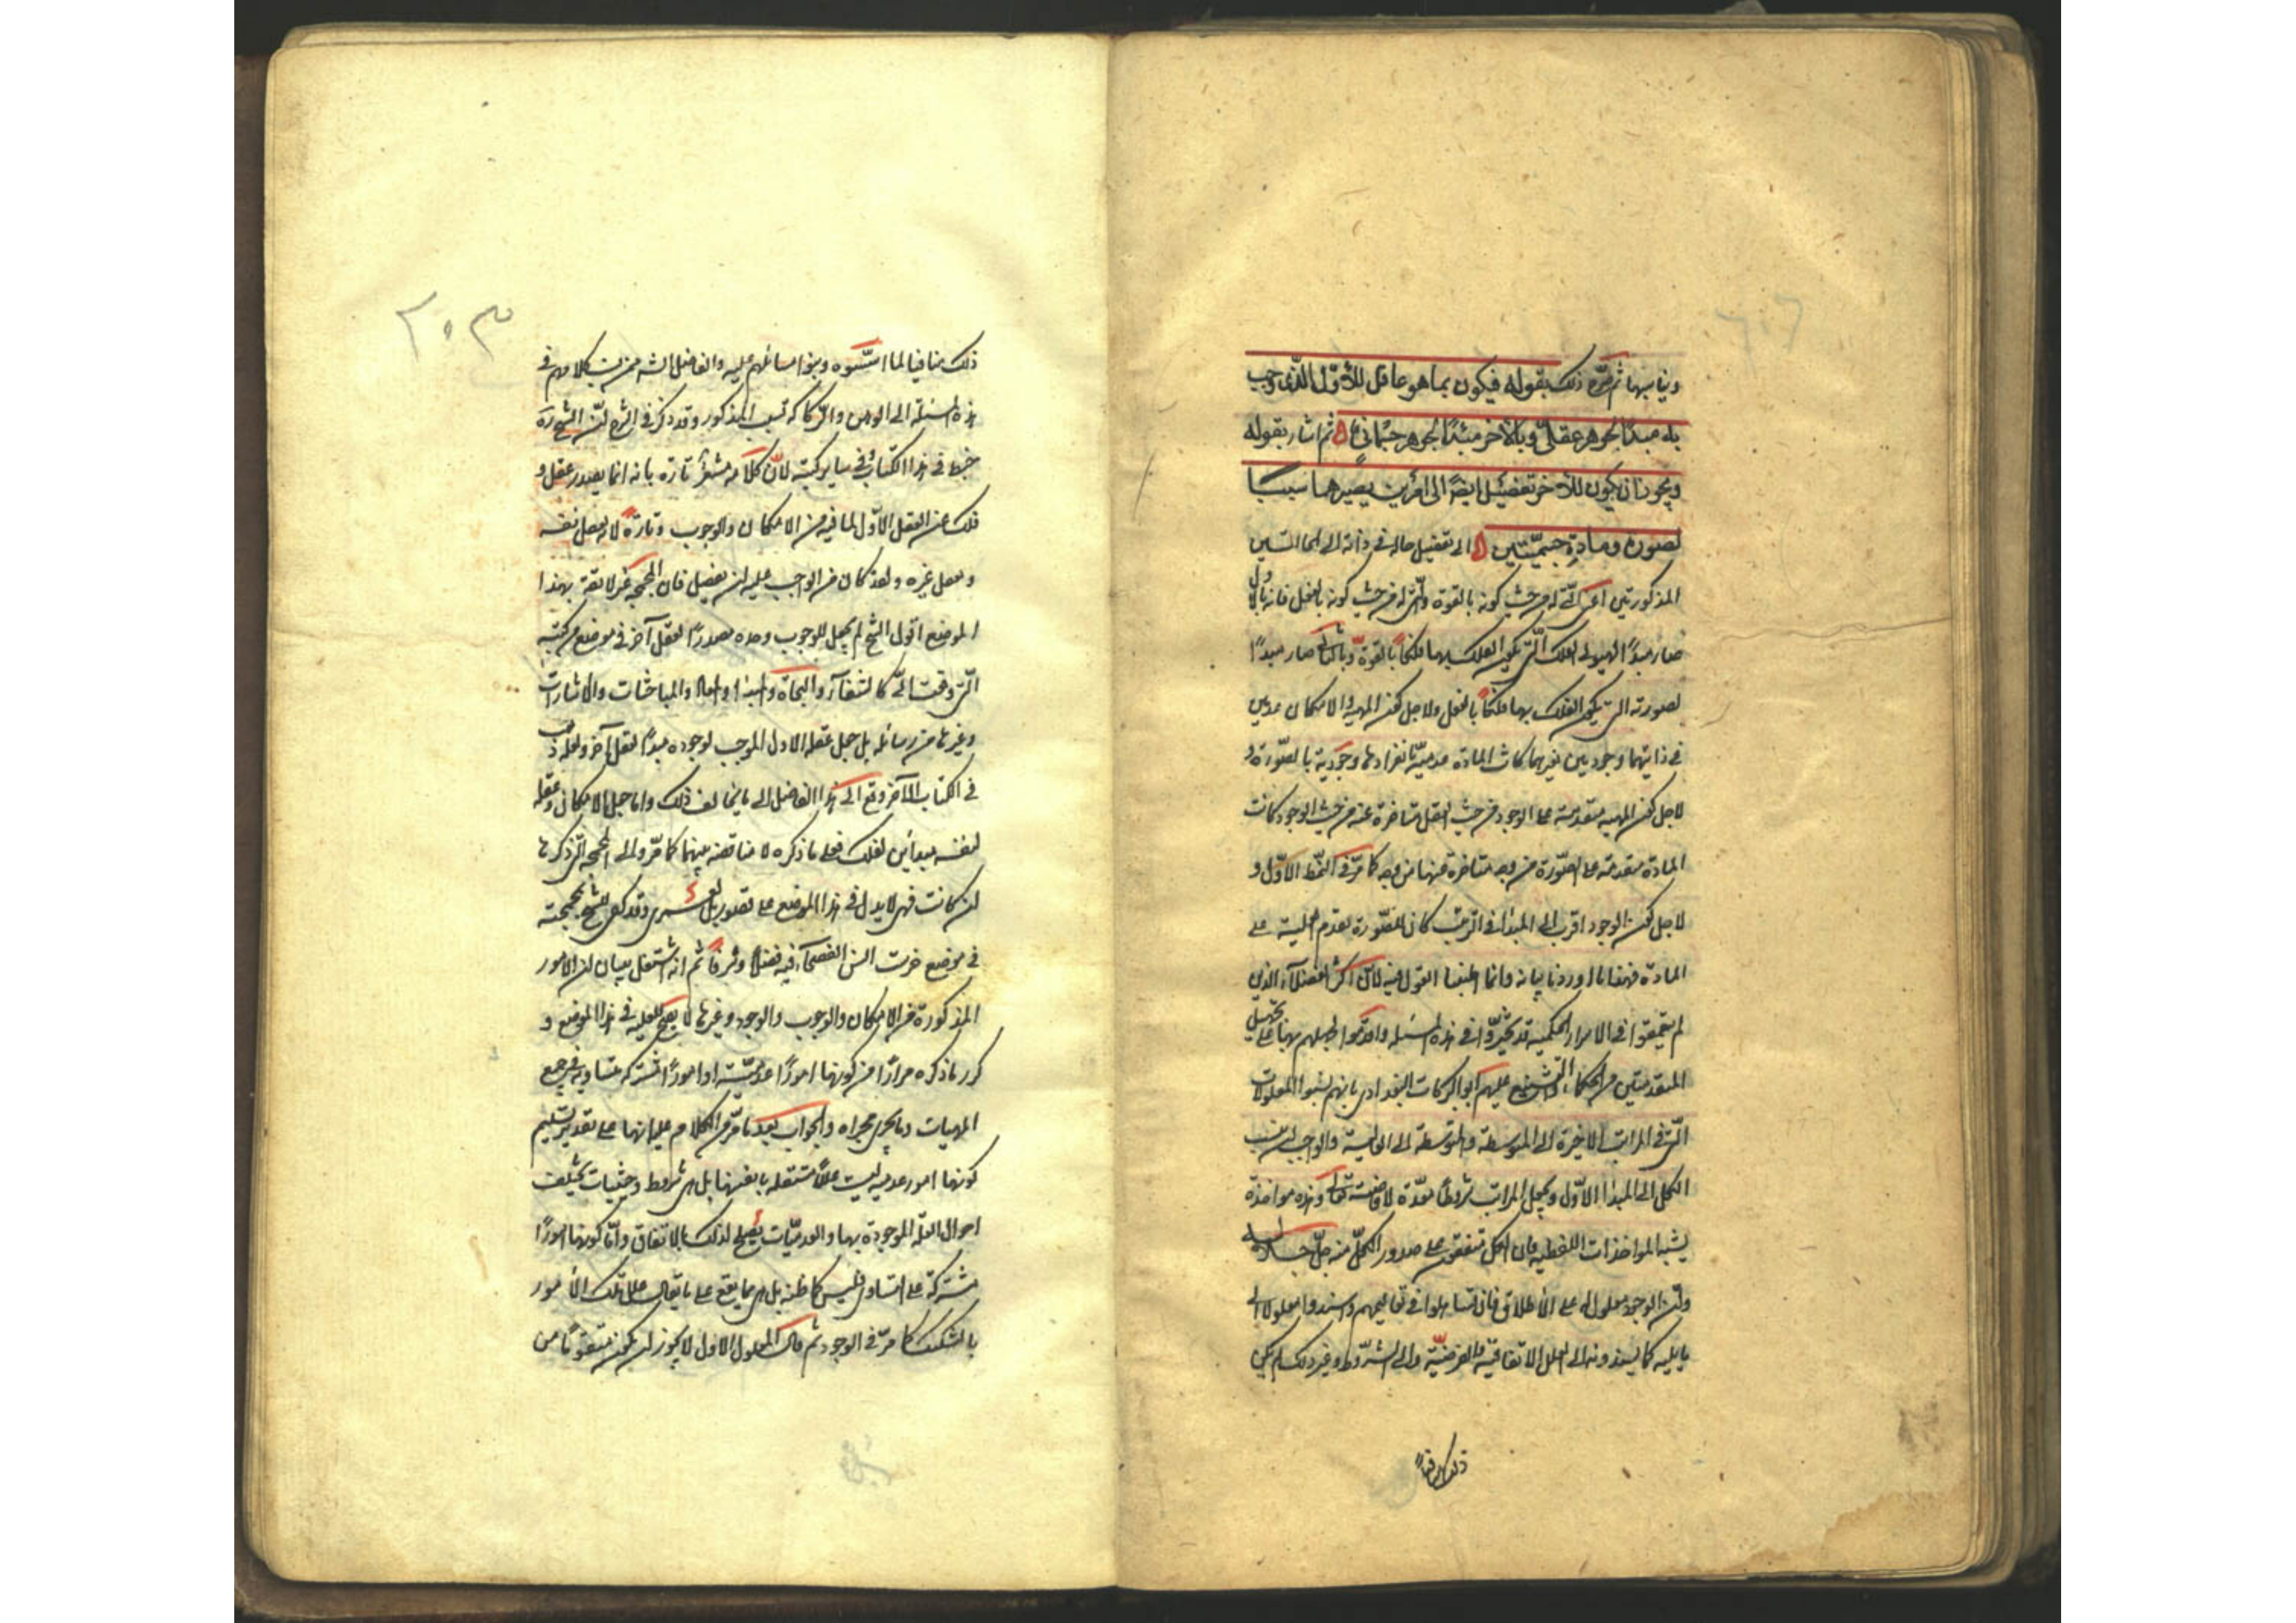 ويناسبها ثم صرح ذلك بقوله فيكون بما هو عاقل للأول الذى وجب
به مبدأ لجوهر عقلى وبالآخر مبدأ لجوهر جسمانى ثم اشار بقوله
ويجوز ان يكون للآخر تفصيل ايضا الى امرين يصير بهما سببا
لصورة ومادة جسميتين الى تفصيل حاله فى ذاته الى الحالتين
المذكورتين اعنى التى له من حيث كونه بالقوة والتى له من حيث كونه بالفعل فانه بالاول
صار مبدأ لهيولى الفلك التى يكون الفلك بها فلكا بالقوة وبالثانى صار مبدأ
لصورته التى يكون الفلك بها فلكا بالفعل ولاجل كون المهية والامكان عدميين
فى ذاتيهما وجوديين بغيرهما كانت المادة عدمية بانفرادها وجودية بالصورة و
لاجل كون المهية متقدمة على الوجود من حيث العقل متاخرة عنه من حيث الوجود كانت
المادة متقدمة على الصورة من وجه متاخرة عنها من وجه كما مر فى النمط الاول و
لاجل كون الوجود اقرب الى المبدأ فى الترتيب كان للصورة تقدم العلية على
المادة فهذا ما اوردنا بيانه وانما اطنبنا القول فيه لان اكثر الفضلاء الذين
لم يتعمقوا فى الاسرار الحكمية قد تحيروا فى هذه المسئلة واقدموا لجهلهم بها على تجهيل
المتقدمين من الحكماء والتشنيع عليهم ابو البركات البغدادى بانهم نسبوا المعلولات
التى فى المراتب الاخيرة الى المتوسطة والمتوسطة الى العالية والواجب ان ينسب
الكل الى المبدأ الاول ويجعل المراتب شروطا معدة لافاضته تعالى وهذه مواخذة
يشبه المواخذات اللفظية فان الكل متفقون على صدور الكل منه جل جلاله
وان الوجود معلول له على الاطلاق فان تساهلوا فى تعاليمهم واسندوا معلولا الى
ما يليه كما يسندونه الى العلل الاتفاقية والعرضية والى الشروط وغير ذلك لم يكن
ذلك منافيا
ذلك منافيا لما اسسوه وبنوا مسائلهم عليه والفاضل الشارح ممن نسب كلامهم فى
هذه المسئلة الى الوهن والركاكة لسبب المذكور وقد ذكر فى الشرح ان الشيخ
خبط فى هذا الكتاب وفى ساير كتبه لان كلامه مشعر تارة بانه انما يصدر عقل و
فلك عن العقل الاول لما فيه من الامكان والوجوب وتارة لانه يعقل نفسه
ويعقل غيره ولقد كان من الواجب عليه ان يفصل فان المجمجة غير لائقة بهذا
الموضع اقول الشيخ لم يجعل للوجوب وحده مصدرا لعقل آخر فى موضع من كتبه
التى وقعت الى كالشفاء والنجاة والمبدأ والمعاد والمباحثات والاشارات
وغيرها من رسائله بل جعل عقله الاول الموجب لوجوده مبدأ لعقل آخر ولعله ذهب
فى الكتاب الآخر وقع الى هذا الفاضل الى ما يخالف ذلك واما جعل الامكان وعقله
لنفسه مبدأين لفلك فعلى ما ذكره لا مناقضة بينهما كما مر والى المجمجة التى ذكرها
ان كانت فهى لا يدل فى هذا الموضع على تصور بل وقد كفى للشيخ بمجمجته
فى موضع خرست السن الفصحاء فيه فضلا وشرفا ثم انه اشتغل ببيان ان الامور
المذكورة من الامكان والوجوب والوجود وغيرها لا يصح للعلية فى هذا الموضع و
كرر ما ذكره مرارا من كونها امورا عدمية او امورا مشتركة متساوية فى جميع
المهيات وما يجرى مجراه والجواب بعد ما مر من الكلام عليها انها على تقدير تسليم
كونها امور عدمية ليست عللا مستقلة بانفسها بل هى شروط وحيثيات تختلف
احوال العلة الموجودة بها والعدميات يصلح لذلك بالاتفاق واما كونها امورا
مشتركة على التساوى فليس كما ظنه بل هى مما يقع على ما يقال على تلك الامور
بالتشكيك كما مر فى الوجود ثم قال المعلول الاول لا يجوز ان يكون متقوما من
٢٠٣